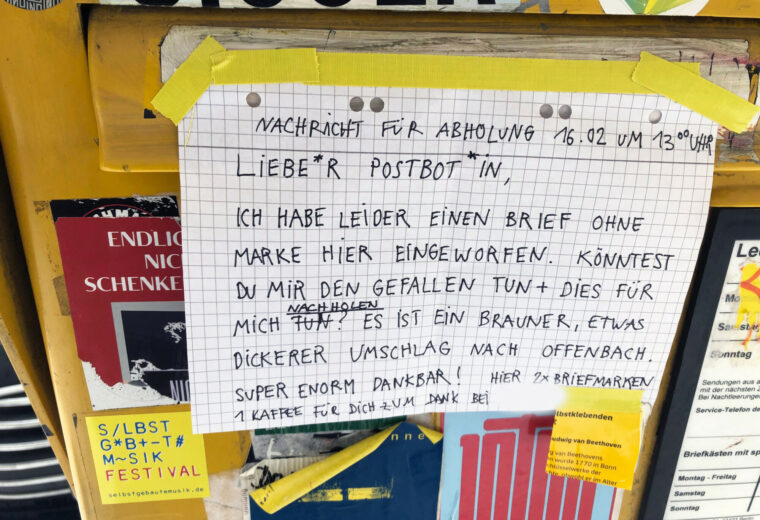 NACHRICHT FÜR ABHOLUNG 16.02 UM 13⁰⁰ UHR
LIEBE*R POSTBOT*IN,
ICH HABE LEIDER EINEN BRIEF OHNE
MARKE HIER EINGEWORFEN. KÖNNTEST
DU MIR DEN GEFALLEN TUN + DIES FÜR
MICH TUN? NACHHOLEN ES IST EIN BRAUNER, ETWAS
DICKERER UMSCHLAG NACH OFFENBACH.
SUPER ENORM DANKBAR! HIER 2x BRIEFMARKEN
1 KAFFEE FÜR DICH ZUM DANK BEI
ENDLIC
NIC
SCHENKE
S/LBST
G*B+-T#
M~SIK
FESTIVAL
selbstgebautemusik.de
nne
lbstklebenden
udwig van Beethoven
g van Beethovens
n wurde 1770 in Bonn
hlüsselwerke der
Le
Mo
Sams
Sonntag
Sendungen aus
mit der nächsten
Bei Nachtleerungen
Service-Telefon de
Briefkästen mit sp
Montag - Freitag
Samstag
Sonntag